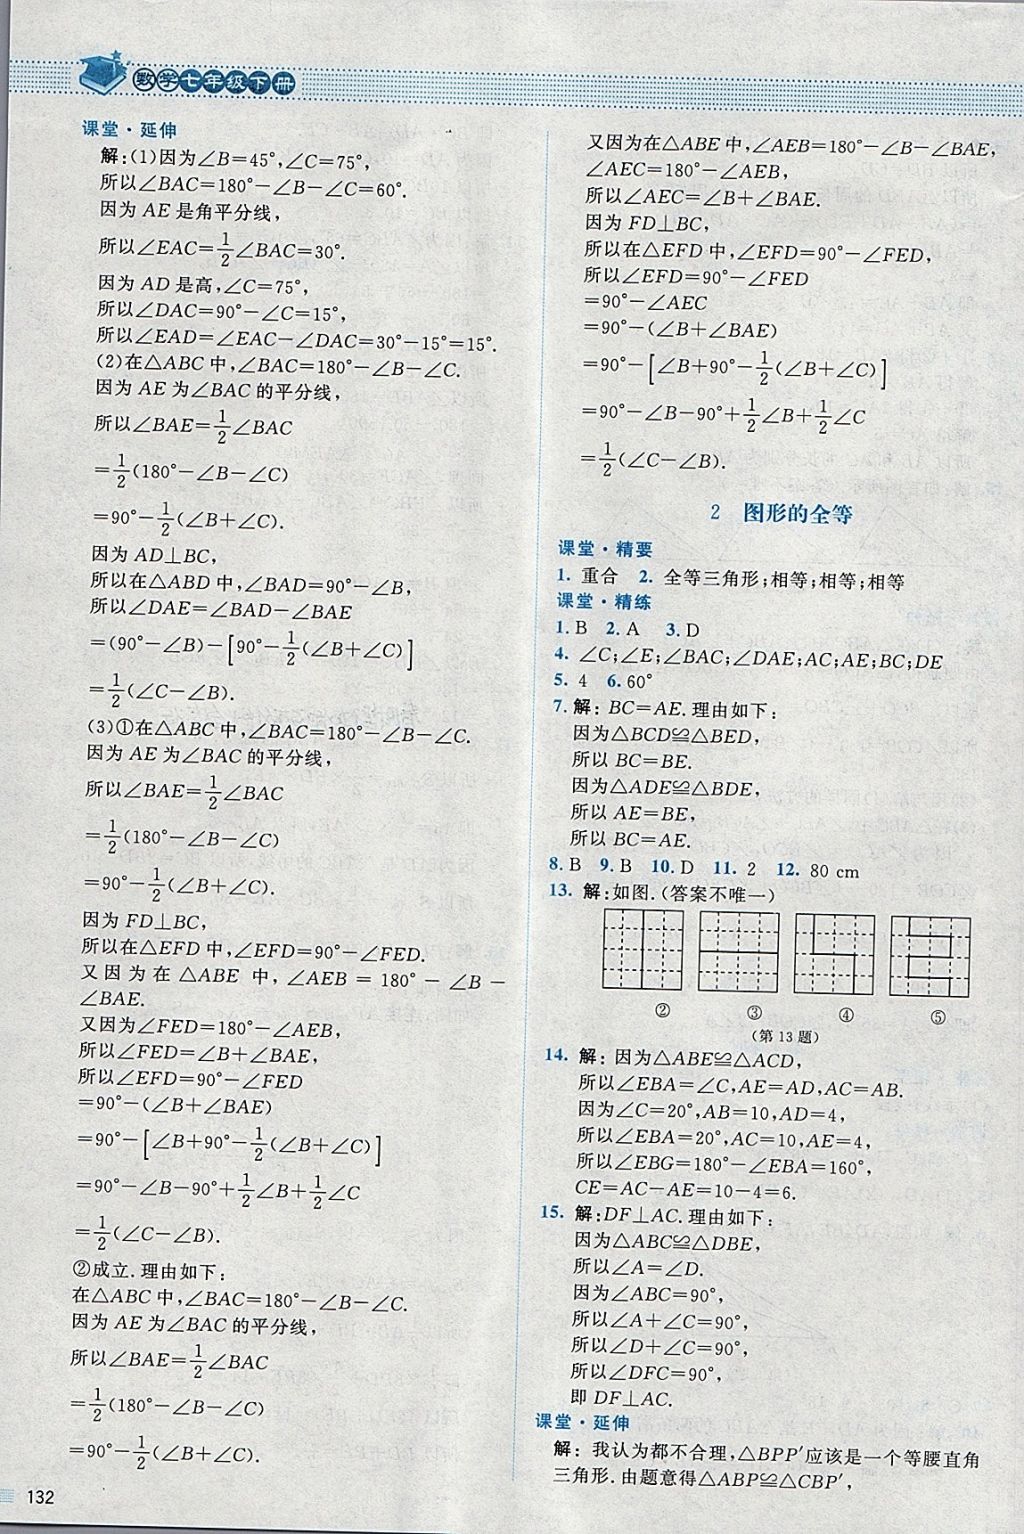 数学七年级下册
课堂·延伸
解:(1)因为∠B=45°,∠C=75°,
所以∠BAC=180°-∠B-∠C=60°.
因为 AE 是角平分线,
所以∠EAC=1/2∠BAC=30°.
因为 AD 是高,∠C=75°,
所以∠DAC=90°-∠C=15°,
所以∠EAD=∠EAC-∠DAC=30°-15°=15°.
(2)在△ABC 中,∠BAC=180°-∠B-∠C.
因为 AE 为∠BAC 的平分线,
所以∠BAE=1/2∠BAC
=1/2(180°-∠B-∠C)
=90°-1/2(∠B+∠C).
因为 AD⊥BC,
所以在△ABD 中,∠BAD=90°-∠B,
所以∠DAE=∠BAD-∠BAE
=(90°-∠B)-[90°-1/2(∠B+∠C)]
=1/2(∠C-∠B).
(3)①在△ABC 中,∠BAC=180°-∠B-∠C.
因为 AE 为∠BAC 的平分线,
所以∠BAE=1/2∠BAC
=1/2(180°-∠B-∠C)
=90°-1/2(∠B+∠C).
因为 FD⊥BC,
所以在△EFD 中,∠EFD=90°-∠FED.
又因为在△ABE 中,∠AEB=180°-∠B-
∠BAE.
又因为∠FED=180°-∠AEB,
所以∠FED=∠B+∠BAE,
所以∠EFD=90°-∠FED
=90°-(∠B+∠BAE)
=90°-[∠B+90°-1/2(∠B+∠C)]
=90°-∠B-90°+1/2∠B+1/2∠C
=1/2(∠C-∠B).
②成立.理由如下:
在△ABC 中,∠BAC=180°-∠B-∠C.
因为 AE 为∠BAC 的平分线,
所以∠BAE=1/2∠BAC
=1/2(180°-∠B-∠C)
=90°-1/2(∠B+∠C).
132
又因为在△ABE 中,∠AEB=180°-∠B-∠BAE,
∠AEC=180°-∠AEB,
所以∠AEC=∠B+∠BAE.
因为 FD⊥BC,
所以在△EFD 中,∠EFD=90°-∠FED,
所以∠EFD=90°-∠FED
=90°-∠AEC
=90°-(∠B+∠BAE)
=90°-[∠B+90°-1/2(∠B+∠C)]
=90°-∠B-90°+1/2∠B+1/2∠C
=1/2(∠C-∠B).
2 图形的全等
课堂·精要
1. 重合 2. 全等三角形;相等;相等;相等
课堂·精练
1. B 2. A 3. D
4. ∠C;∠E;∠BAC;∠DAE;AC;AE;BC;DE
5. 4 6. 60°
7. 解: BC=AE.理由如下:
因为△BCD≌△BED,
所以 BC=BE.
因为△ADE≌△BDE,
所以 AE=BE,
所以 BC=AE.
8. B 9. B 10. D 11. 2 12. 80 cm
13. 解:如图.(答案不唯一)
② ③ ④ ⑤
(第 13 题)
14. 解: 因为△ABE≌△ACD,
所以∠EBA=∠C,AE=AD,AC=AB.
因为∠C=20°,AB=10,AD=4,
所以∠EBA=20°,AC=10,AE=4,
所以∠EBG=180°-∠EBA=160°,
CE=AC-AE=10-4=6.
15. 解:DF⊥AC.理由如下:
因为△ABC≌△DBE,
所以∠A=∠D.
因为∠ABC=90°,
所以∠A+∠C=90°,
所以∠D+∠C=90°,
所以∠DFC=90°,
即 DF⊥AC.
课堂·延伸
解: 我认为都不合理,△BPP′应该是一个等腰直角
三角形.由题意得△ABP≌△CBP′,